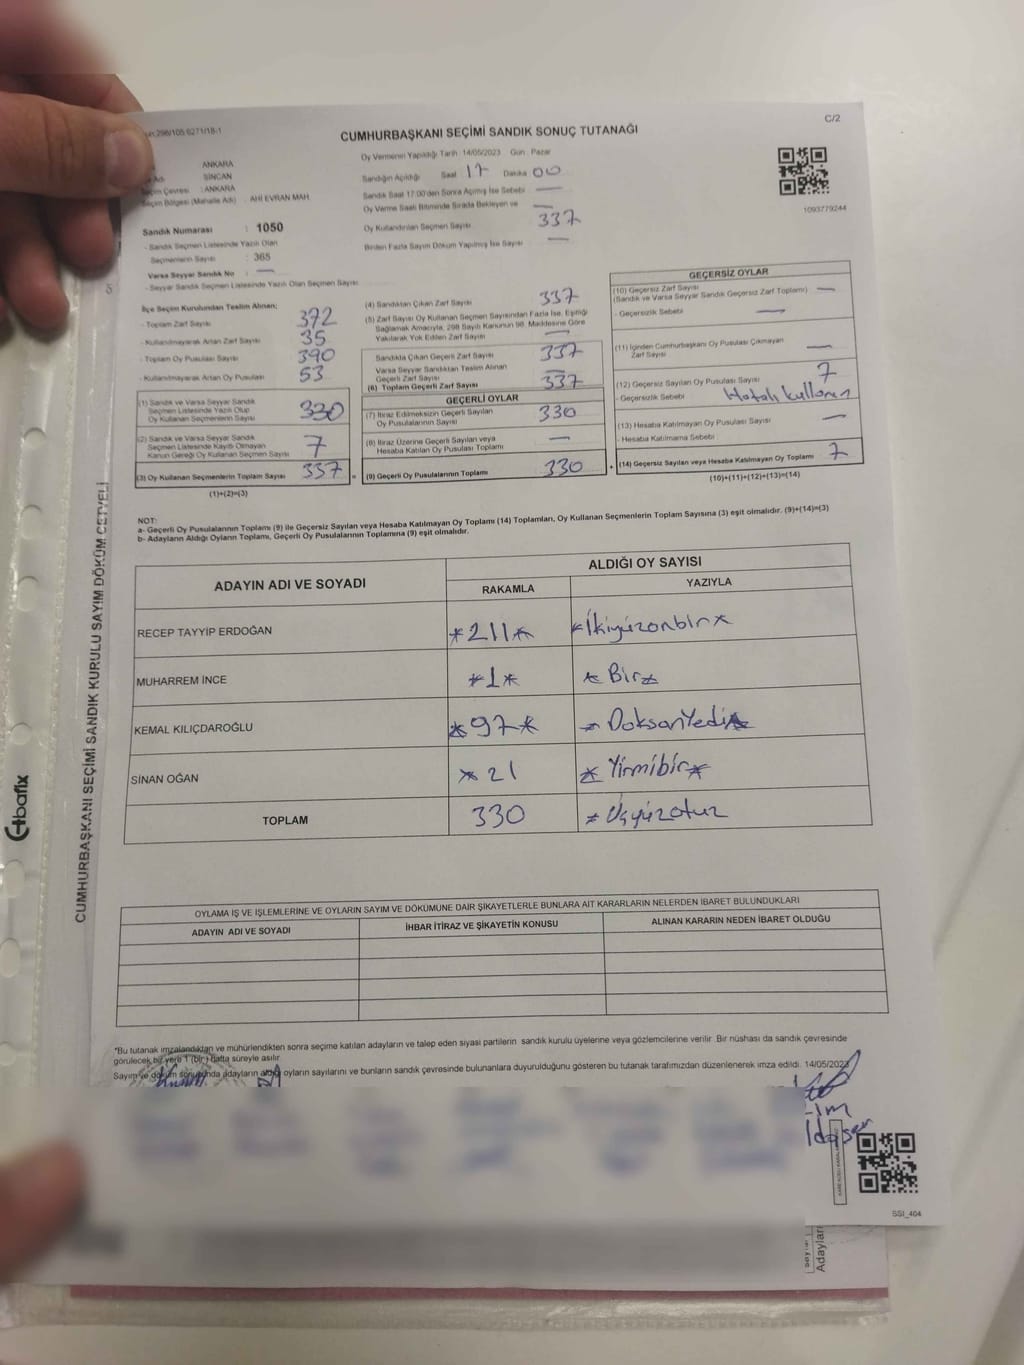 298/105.6271/18-1
C/2
CUMHURBAŞKANI SEÇİMİ SANDIK SONUÇ TUTANAĞI
ANKARA
Adı SİNCAN
Seçim Çevresi : ANKARA
Seçim Bölgesi (Mahalle Adı) : AHİ EVRAN MAH
Oy Vermenin Yapıldığı Tarih 14/05/2023 Gün Pazar
Sandığın Açıldığı Saat 17 Dakika 00
Sandık Saat 17:00'den Sonra Açılmış İse Sebebi —
Oy Verme Saati Bitiminde Sırada Bekleyen ve —
Oy Kullandırılan Seçmen Sayısı 337
Birden Fazla Sayım Döküm Yapılmış İse Sayısı —
1093779244
Sandık Numarası : 1050
- Sandık Seçmen Listesinde Yazılı Olan
Seçmenlerin Sayısı : 365
Varsa Seyyar Sandık No : —
- Seyyar Sandık Seçmen Listesinde Yazılı Olan Seçmen Sayısı
İlçe Seçim Kurulundan Teslim Alınan;
- Toplam Zarf Sayısı 372
- Kullanılmayarak Artan Zarf Sayısı 35
- Toplam Oy Pusulası Sayısı 390
- Kullanılmayarak Artan Oy Pusulası 53
(1) Sandık ve Varsa Seyyar Sandık
Seçmen Listesinde Yazılı Olup
Oy Kullanan Seçmenlerin Sayısı 330
(2) Sandık ve Varsa Seyyar Sandık
Seçmen Listesinde Kayıtlı Olmayan
Kanun Gereği Oy Kullanan Seçmen Sayısı 7
(3) Oy Kullanan Seçmenlerin Toplam Sayısı 337
(1)+(2)=(3)
(4) Sandıktan Çıkan Zarf Sayısı 337
(5) Zarf Sayısı Oy Kullanan Seçmen Sayısından Fazla İse, Eşitliği
Sağlamak Amacıyla, 298 Sayılı Kanunun 98. Maddesine Göre
Yakılarak Yok Edilen Zarf Sayısı —
Sandıkta Çıkan Geçerli Zarf Sayısı 337
Varsa Seyyar Sandıktan Teslim Alınan
Geçerli Zarf Sayısı —
(6) Toplam Geçerli Zarf Sayısı 337
GEÇERLİ OYLAR
(7) İtiraz Edilmeksizin Geçerli Sayılan
Oy Pusulasının Sayısı 330
(8) İtiraz Üzerine Geçerli Sayılan veya
Hesaba Katılan Oy Pusulası Toplamı —
= (9) Geçerli Oy Pusulalarının Toplamı 330
GEÇERSİZ OYLAR
(10) Geçersiz Zarf Sayısı —
(Sandık ve Varsa Seyyar Sandık Geçersiz Zarf Toplamı)
- Geçersizlik Sebebi —
(11) İçinden Cumhurbaşkanı Oy Pusulası Çıkmayan
Zarf Sayısı —
(12) Geçersiz Sayılan Oy Pusulası Sayısı 7
- Geçersizlik Sebebi Hatalı kullanım
(13) Hesaba Katılmayan Oy Pusulası Sayısı —
- Hesaba Katılmama Sebebi
+ (14) Geçersiz Sayılan veya Hesaba Katılmayan Oy Toplamı 7
(10)+(11)+(12)+(13)=(14)
NOT:
a- Geçerli Oy Pusulalarının Toplamı (9) ile Geçersiz Sayılan veya Hesaba Katılmayan Oy Toplamı (14) Toplamları, Oy Kullanan Seçmenlerin Toplam Sayısına (3) eşit olmalıdır. (9)+(14)=(3)
b- Adayların Aldığı Oyların Toplamı, Geçerli Oy Pusulalarının Toplamına (9) eşit olmalıdır.
ADAYIN ADI VE SOYADI
ALDIĞI OY SAYISI
RAKAMLA YAZIYLA
RECEP TAYYİP ERDOĞAN *211* *İkiyüzonbir*
MUHARREM İNCE *1* *Bir*
KEMAL KILIÇDAROĞLU *97* *DoksanYedi*
SİNAN OĞAN *21 *Yirmibir*
TOPLAM 330 *Üçyüzotuz
OYLAMA İŞ VE İŞLEMLERİNE VE OYLARIN SAYIM VE DÖKÜMÜNE DAİR ŞİKAYETLERLE BUNLARA AİT KARARLARIN NELERDEN İBARET BULUNDUKLARI
ADAYIN ADI VE SOYADI İHBAR İTİRAZ VE ŞİKAYETİN KONUSU ALINAN KARARIN NEDEN İBARET OLDUĞU
*Bu tutanak imzalandıktan ve mühürlendikten sonra seçime katılan adayların ve talep eden siyasi partilerin sandık kurulu üyelerine veya gözlemcilerine verilir. Bir nüshası da sandık çevresinde
görülecek bir yere 1 (bir) hafta süreyle asılır.
Sayım ve döküm sonucunda adayların aldığı oyların sayılarını ve bunların sandık çevresinde bulunanlara duyurulduğunu gösteren bu tutanak tarafımızdan düzenlenerek imza edildi. 14/05/2023
SSI_404
CUMHURBAŞKANI SEÇİMİ SANDIK KURULU SAYIM DÖKÜM CETVELİ
bafix
Adayları